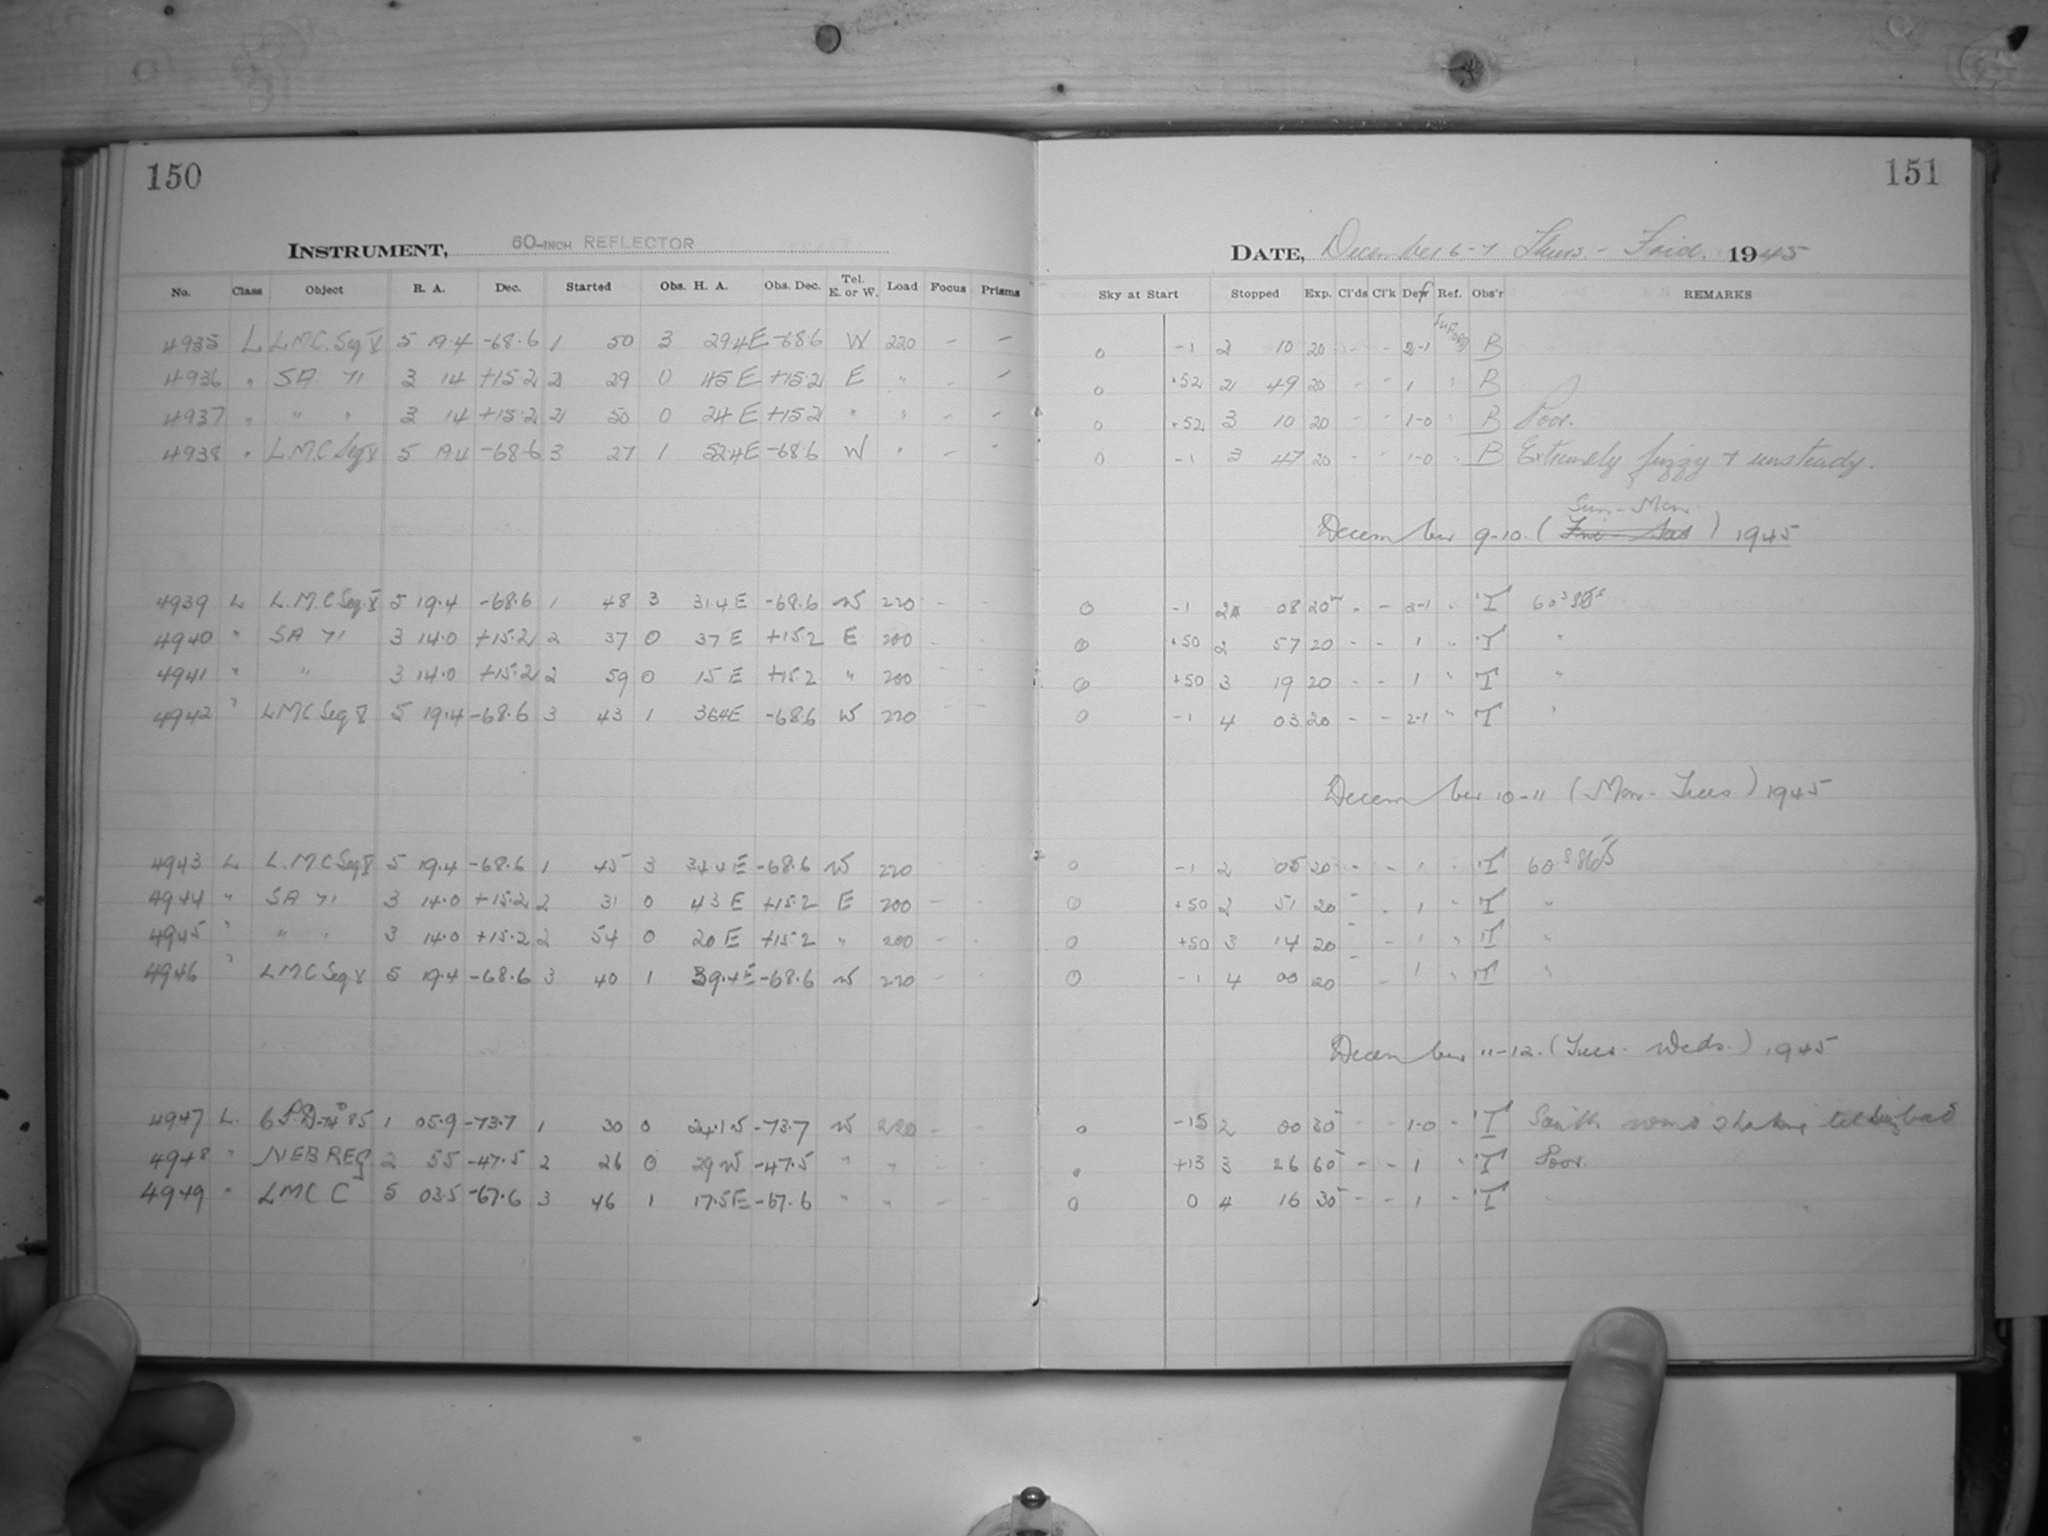 150
151
INSTRUMENT, 60-INCH REFLECTOR
DATE, December 6-7 Thurs. - Frid. 1945
No. Class Object R. A. Dec. Started Obs. H. A. Obs. Dec. Tel. E. or W. Load Focus Prisms Sky at Start Stopped Exp. Cl'ds Cl'k Def Ref. Obs'r REMARKS
4935 L L.M.C. Seq V 5 19.4 -68.6 1 50 3 29.4E -68.6 W 220 - - 0 -1 2 10 20 - - 2-1 B
4936 " SA 71 3 14 +15.2 2 29 0 45 E +15.2 E " - - 0 +52 2 49 20 - - 1 " B
4937 " " " 3 14 +15.2 2 50 0 24 E +15.2 " " - - 0 +52 3 10 20 - - 1-0 " B Poor.
4938 " L.M.C Seq V 5 19.4 -68.6 3 27 1 52.4E -68.6 W " - - 0 -1 3 47 20 - - 1-0 " B Extremely fuzzy + unsteady.
Sun - Mon
December 9-10. (Fri - Sat) 1945
4939 L L.M.C Seq. V 5 19.4 -68.6 1 48 3 31.4 E -68.6 W 220 - - 0 -1 2 08 20m - - 2-1 " T
4940 " SA 71 3 14.0 +15.2 2 37 0 37 E +15.2 E 200 - - 0 +50 2 57 20 - - 1 " T "
4941 " " 3 14.0 +15.2 2 59 0 15 E +15.2 " 200 - - 0 +50 3 19 20 - - 1 " T "
4942 " LMC Seq V 5 19.4 -68.6 3 43 1 36.4E -68.6 W 220 - - 0 -1 4 03 20 - - 2-1 " T "
December 10-11 (Mon - Tues) 1945
4943 L L.M.C Seq V 5 19.4 -68.6 1 45 3 34.4 E -68.6 W 220 - - 0 -1 2 05 20 - - 1 " T
4944 " SA 71 3 14.0 +15.2 2 31 0 43 E +15.2 E 200 - - 0 +50 2 51 20 - - 1 " T "
4945 " " " 3 14.0 +15.2 2 54 0 20 E +15.2 " 200 - - 0 +50 3 14 20 - - 1 " T "
4946 " LMC Seq V 5 19.4 -68.6 3 40 1 39.4 E -68.6 W 220 - - 0 -1 4 00 20 - - 1 " T "
December 11-12. (Tues - Weds.) 1945
4947 L. CPD-74°85 1 05.9 -73.7 1 30 0 24.1 W -73.7 W 220 - - 0 -15 2 00 30 - - 1-0 - T South wind shaking tel bad
4948 " NEB REG 2 55 -47.5 2 26 0 29 W -47.5 " " - - 0 +13 3 26 60 - - 1 " T Poor.
4949 " LMC C 5 03.5 -67.6 3 46 1 17.5E -67.6 " " - - 0 0 4 16 30 - - 1 - T